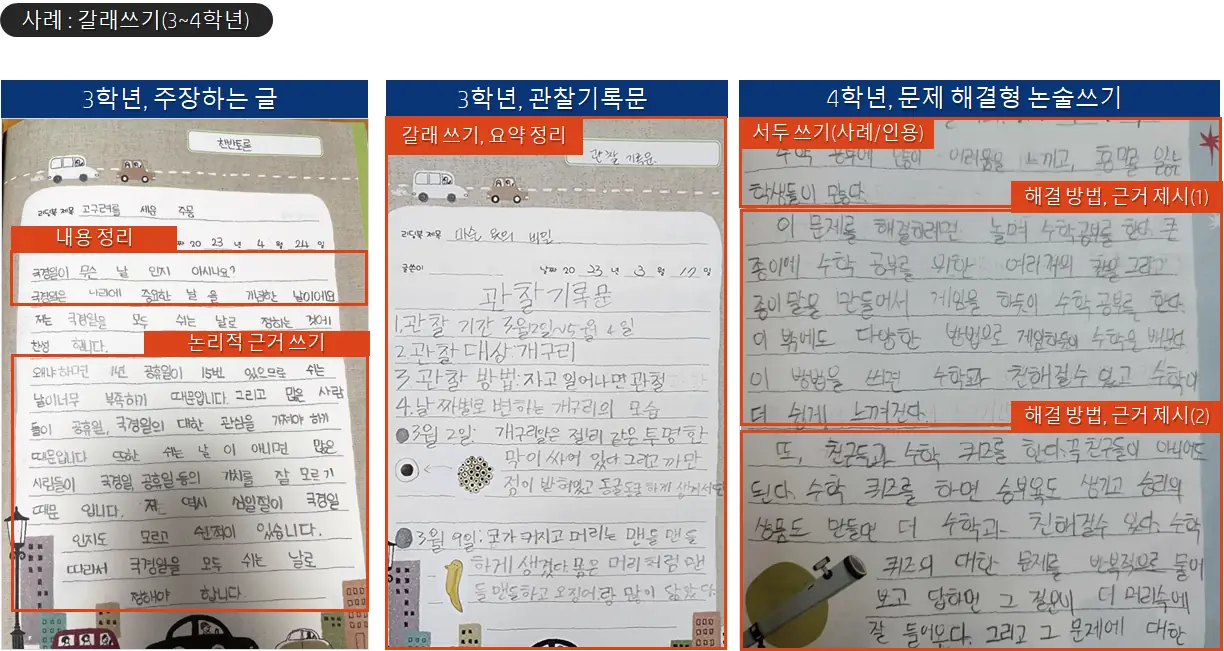 사례 : 갈래쓰기(3~4학년)
3학년, 주장하는 글
찬반토론
리딩북 제목 고구려를 세운 주몽
내용 정리
짜 20 23 년 4 월 24 일
국경일이 무슨 날 인지 아시나요?
국경일은 나라에 중요한 날 을 기념한 날이에요
저는 국경일을 모두 쉬는 날로 정하는 것에
찬성 합니다.
논리적 근거 쓰기
왜냐하면 1년 공휴일이 15번 있으므로 쉬는
날이너무 부족하기 때문입니다. 그리고 많은 사람
들이 공휴일, 국경일의 대한 관심을 가져야 하기
때문입니다 또한 쉬는 날 이 아니면 많은
사람들이 국경일, 공휴일 등의 가치를 잘 모르기
때문 입니다. 저는 역시 삼일절이 국경일
인지도 모르고 쉰적이 있습니다.
따라서 국경일을 모두 쉬는 날로
정해야 합니다.
3학년, 관찰기록문
갈래 쓰기, 요약 정리
관찰 기록문
리딩북 제목 마술 의 비밀
글쓴이
날짜 20 23 년 3 월 17 일
관찰기록문
1.관찰 기간 3월2일~5월 4일
2.관찰 대상:개구리
3.관찰 방법:자고 일어나면 관찰
4.날짜별로 변하는 개구리의 모습
3월 2일: 개구리알은 젤리 같은 투명한
막이 싸여 있다 그리고 까만
점이 박혀있고 동글동글하게 생겨서
3월 9일: 코가 커지고 머리는 맨들 맨들
하게 생겼다. 몸은 머리처럼 맨
들 맨들하고 오징어랑 많이 닮았다.
4학년, 문제 해결형 논술쓰기
서두 쓰기(사례/인용)
수학 공부에 많이 어려움을 느끼고, 흥미를 잃는
학생들이 많다.
해결 방법, 근거 제시(1)
이 문제를 해결하려면 놀며 수학공부를 한다. 큰
종이에 수학 공부를 위한 여러개의 칸을 그리고
종이말을 만들어서 게임을 하듯이 수학 공부를 한다.
이 밖에도 다양한 방법으로 게임하듯이 수학을 배운다.
이 방법을 쓰면 수학과 친해질수 있고 수학이
더 쉽게 느껴진다.
해결 방법, 근거 제시(2)
또, 친구들과 수학 퀴즈를 한다.꼭친구들이 아니어도
된다. 수학 퀴즈를 하면 승부욕도 생기고 승리의
상품도 만들면 더 수학과 친해질수 있다. 수학
퀴즈의 대한 문제를 반복적으로 풀어
보고 답하면 그 질문이 더 머리속에
잘 들어온다. 그리고 그 문제에 대한